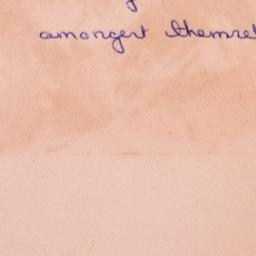 amongst themsel